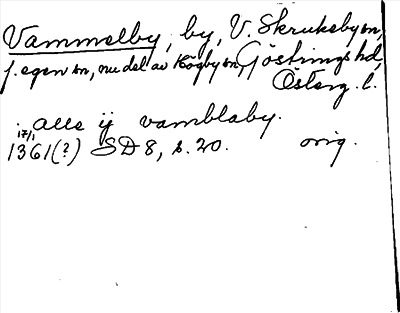 Vammelby, by, V. Skrukeby sn,
f. egen sn, nu del av Högby sn, Göstrings hd,
Österg. l.
alle ij vamblaby.
17/1
1361(?) SD 8, s. 20. orig.